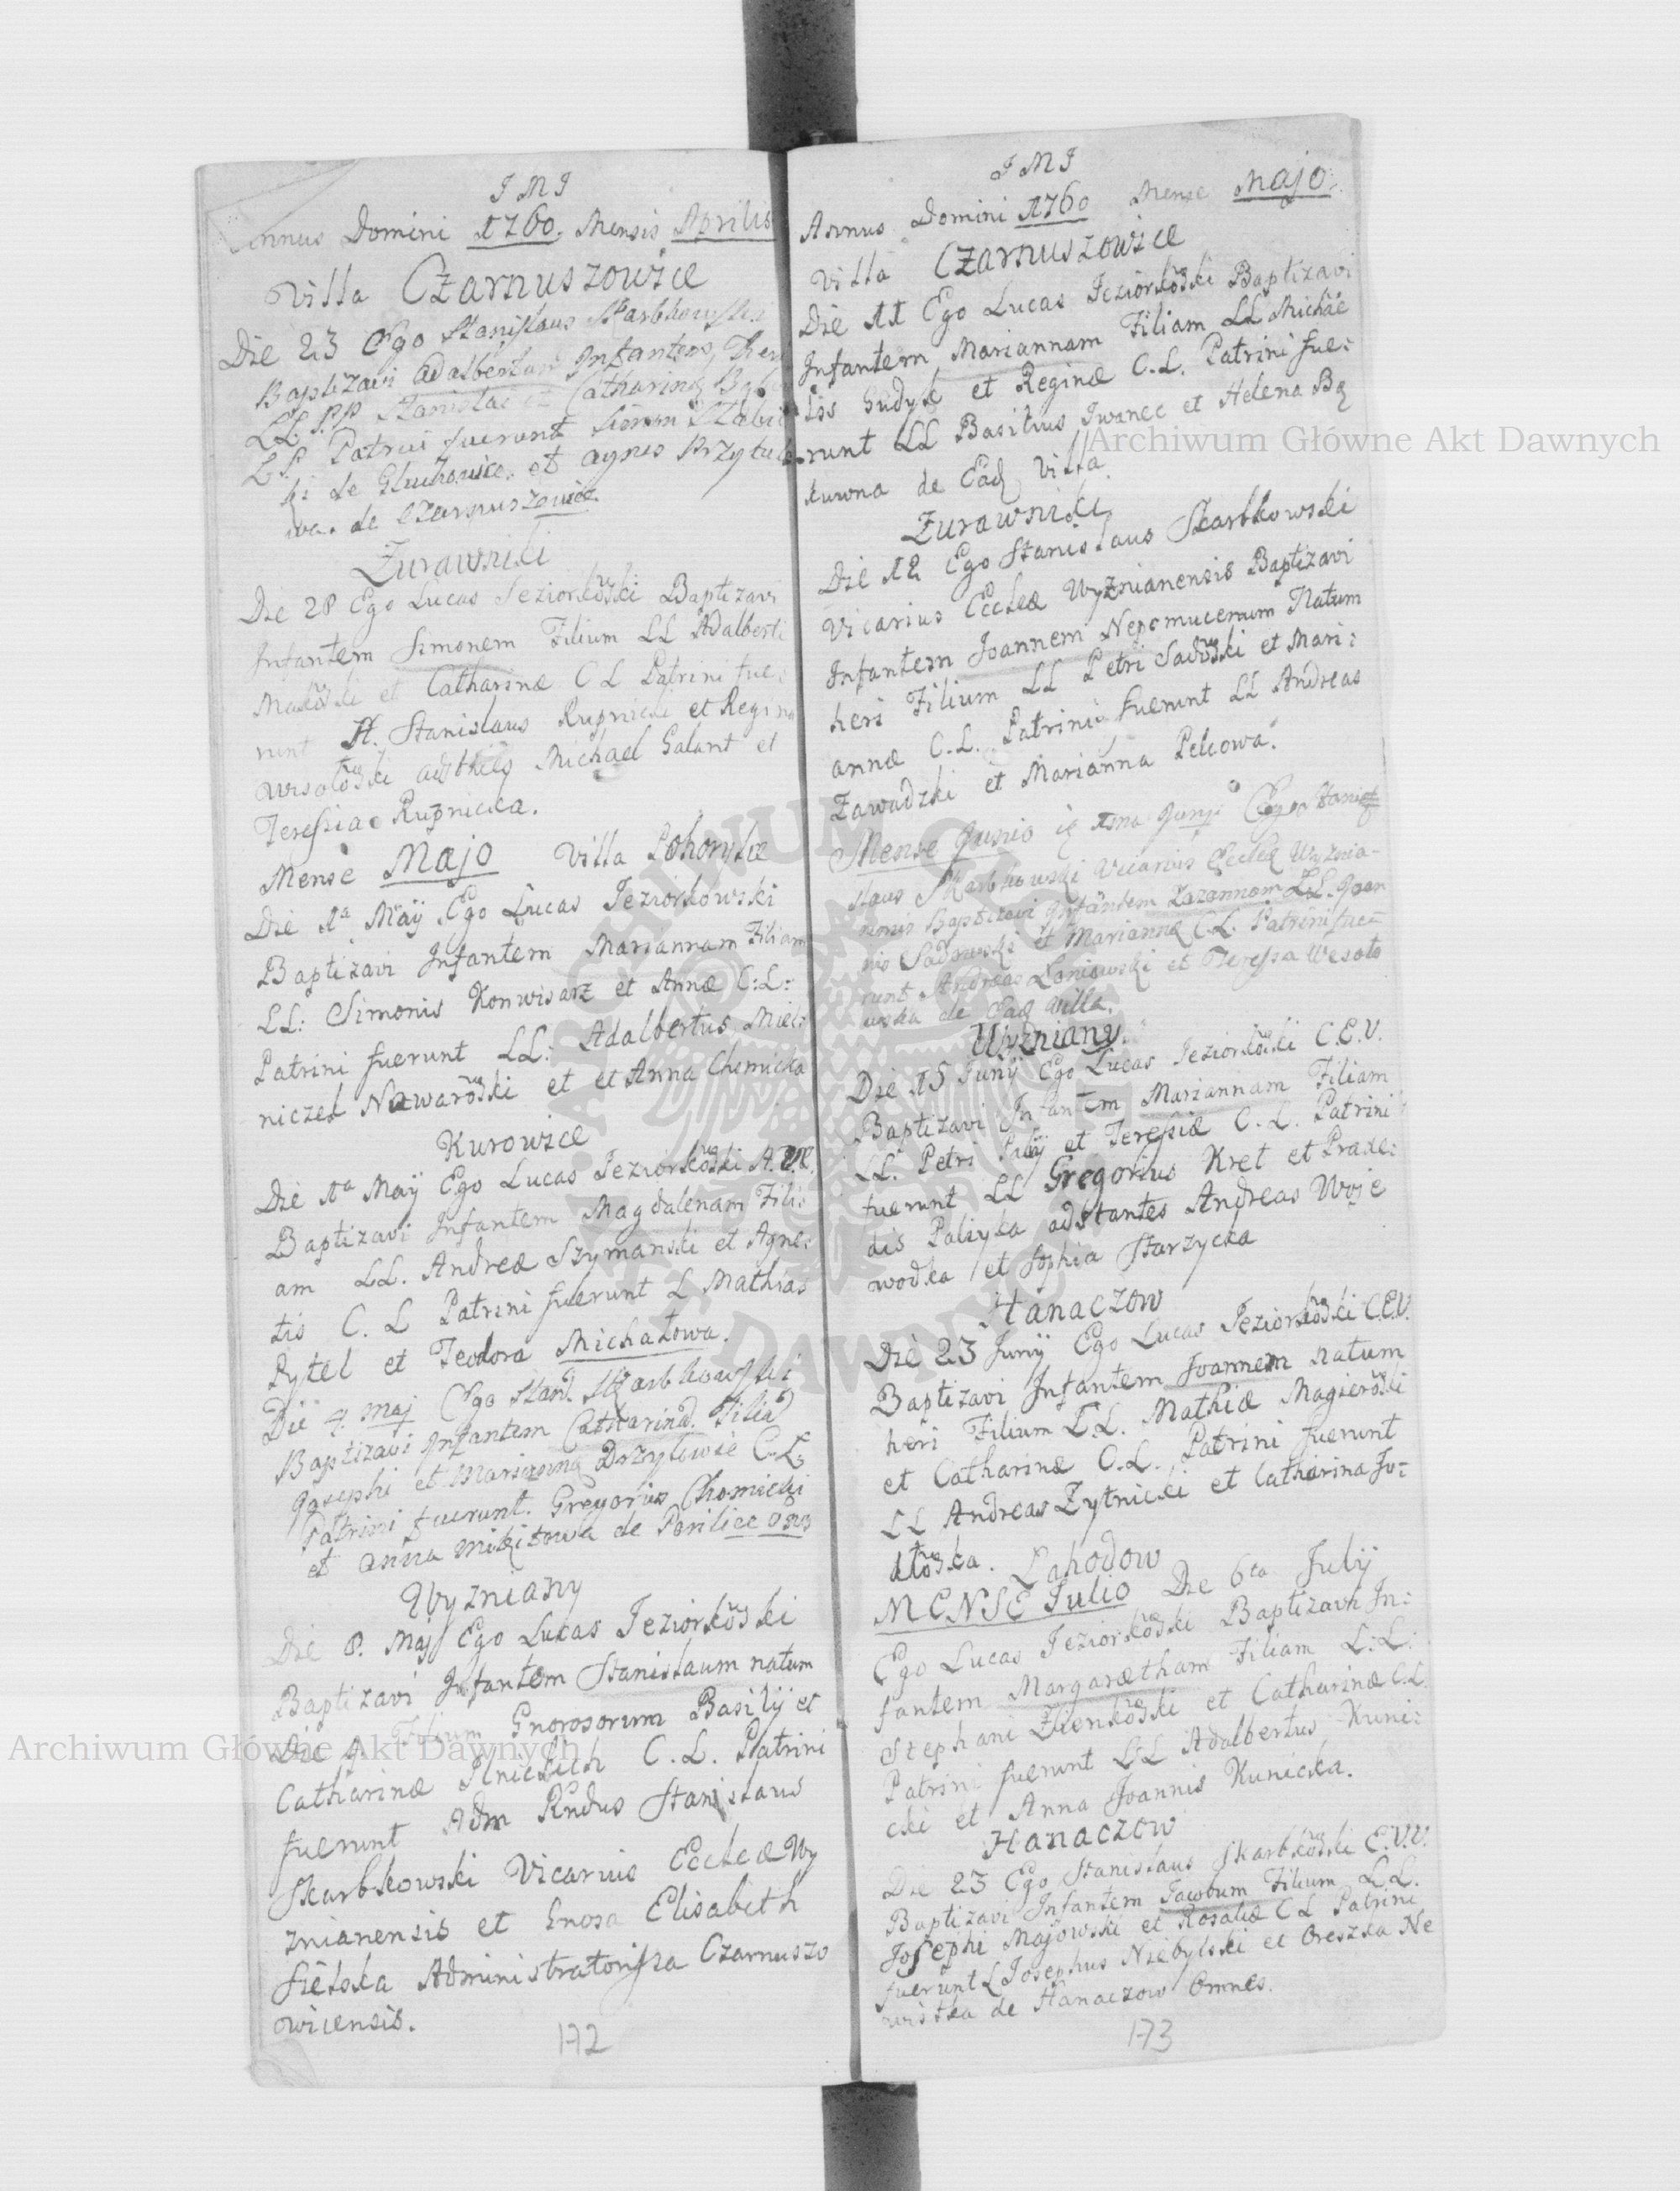 J M J
Annus Domini 1760. Mensis Aprilis
Villa Czarnuszowice
Die 23 Ego Stanislaus Skarbkowski
Baptizavi Adalbertum Infantem,
LL. PP Stanislai et Catharinæ
L.P. Patrini fuerunt Simon
ki de Gluchowice. et Agnes Przytul
wa. de Czarnuszowice.
Zurawniki
Die 28 Ego Lucas Jeziorkow̃ski Baptizavi
Infantem Simonem Filium LL Adalberti
et Catharinæ C L Patrini fue:
runt Stanislaus Rupnicki et Regina
Michael Galant et
Teressia Rupnicka.
Mense Majo Villa Pohorylce
Die 1ª Maÿ Ego Lucas Jeziorkowski
Baptizavi Infantem Mariannam Filiam
LL: Simonis Konwisarz et Annæ C:L:
Patrini fuerunt LL: Adalbertus Miel:
niczek Nawarow̃ski et et Anna Chomicka
Kurowice
Die 1ª Maÿ Ego Lucas Jeziorkow̃ski
Baptizavi Infantem Magdalenam Fili:
am LL. Andreæ Szymanski et Agne:
tis C. L Patrini fuerunt L Mathias
Pytel et Teodora Michałowa.
Die 4. Maj Ego Stan. Skarbkowski
Baptizavi Infantem Catharinā. Filiā
Josephi et Mariannæ C.L.
Patrini fuerunt. Gregorius Chomicki
et Anna Mikitowa de
Wyzniany
Die 8. Maj Ego Lucas Jeziorkow̃ski
Baptizavi Infantem Stanislaum natum
Die 4 Filium Gnorosorum Basilÿ et
Catharinæ Ilnickich C. L. Patrini
fuerunt Adm Rndus Stanislaus
Skarbkowski Vicarius Eccleæ Wy
znianensis et Gnosa Elisabeth
Sielska Administratorissa Czarnuszo
wicensis.
172
J M J
Annus Domini 1760 Mense Majo.
Villa Czarnuszowice
Die 11 Ego Lucas Jeziorkow̃ski Baptizavi
Infantem Mariannam Filiam LL Michae
lis Gudyk et Reginæ C.L. Patrini fue:
runt LL Basilius Iwanec et Helena Bą
kuwna de Eadͅ Villa.
Zurawniki
Die 12 Ego Stanislaus Skarbkowski
Vicarius Eccleæ Wyznianensis Baptizavi
Infantem Joannem Nepomucenum Natum
heri Filium LL Petri Sadow̃ski et Mari:
annæ C.L. Patrini fuerunt LL Andreas
Zawadzki et Marianna Pelcowa.
Mense Junio Junj Ego Stanis
laus Skarbkowski Vicarius Eccleæ Wyznia-
nensis Baptizavi Infantem Zazannam LL. Joan
nis Sadowski et Mariannæ C.L. Patrini fue-
runt Andreas Laniowski et Teressa Wesoło
wska de Ead Villa.
Wyzniany.
Die 15 Junÿ Ego Lucas Jeziorkow̃ski C.E.V.
Baptizavi Infantem Mariannam Filiam
LL. Petri Paliÿ et Teressiæ C. L. Patrini
fuerunt LL Gregorius Kret et Praxe:
dis Paliyka adstantes Andreas Woje
wodka et Sophia Starzycka
Hanaczow
Die 23 Junÿ Ego Lucas Jeziorkow̃ski C.E.V.
Baptizavi Infantem Joannem natum
heri Filium L.L. Mathiæ Magierow̃ski
et Catharinæ C.L. Patrini fuerunt
LL Andreas Zytnicki et Catharina Ju:
dkow̃ska. Lahodow
MENSE Julio Die 6ta Julÿ
Ego Lucas Jeziorkow̃ski Baptizavi In:
fantem Margaretham Filiam L:L:
Stephani Zienkow̃ski et Catharinæ C.L.
Patrini fuerunt LL Adalbertus Kuni:
cki et Anna Joannis Kunicka.
Hanaczow
Die 23 Ego Stanislaus Skarbkow̃ski E.V.V.
Baptizavi Infantem Jacobum Filium L.L.
Josephi Majowski et Rosaliæ C L Patrini
fuerunt L Josephus Niebylski et Oreszka Ne
wistka de Hanaczow Omnes.
173
Archiwum Główne Akt Dawnych
Archiwum Główne Akt Dawnych
ARCHIWUM GŁÓWNE AKT DAWNYCH